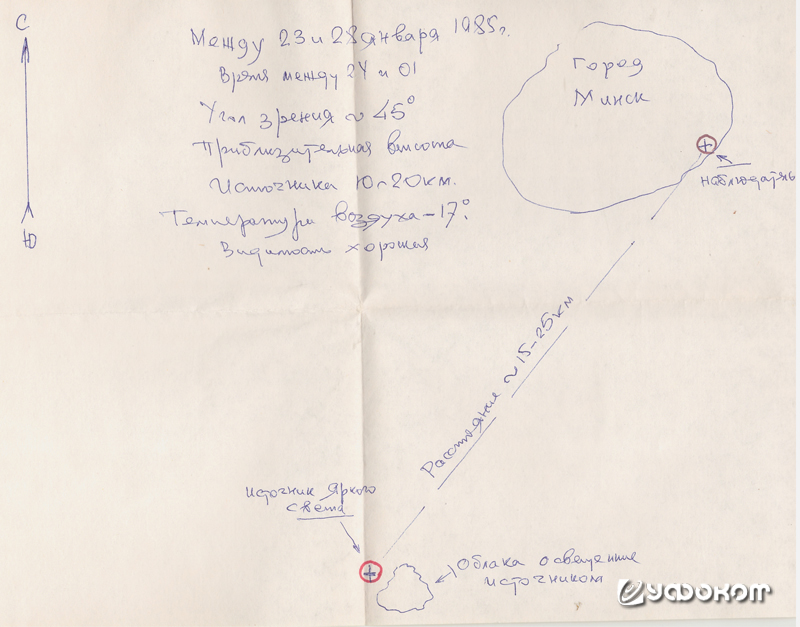 С
Ю
Между 23 и 28 января 1985г.
Время между 24 и 01
Угол зрения ~ 45°
Приблизительная высота
источника 10-20 км.
Температура воздуха -17°.
Видимость хорошая
Город
Минск
наблюдатель
Расстояние ~ 15-25 км
источник яркого
света
Облака освещенные
источником
уфоком